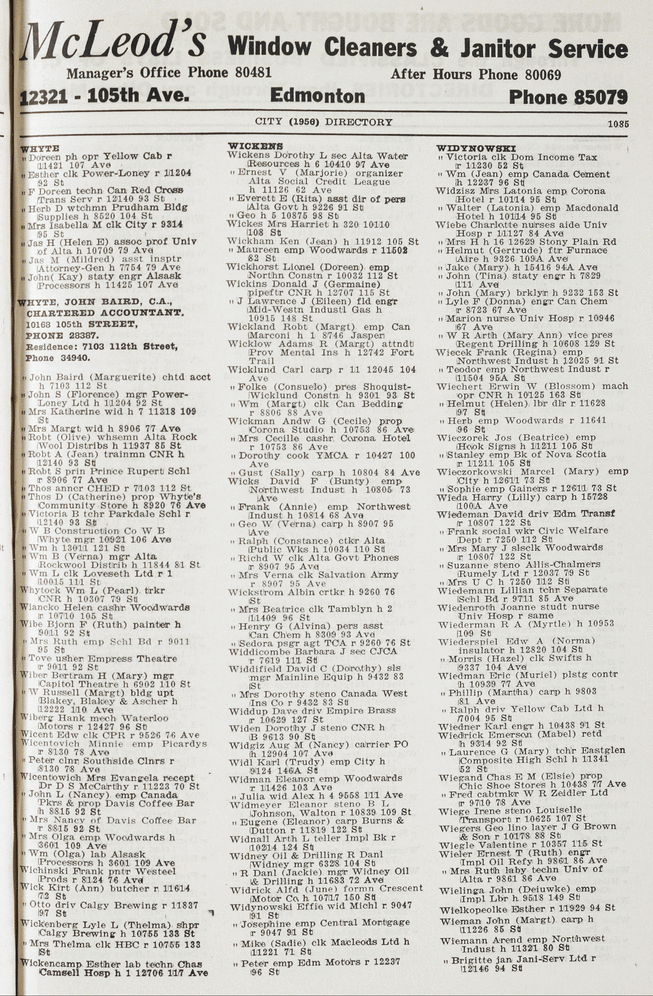 McLeod's Window Cleaners & Janitor Service
Manager's Office Phone 80481 After Hours Phone 80069
12321 - 105th Ave. Edmonton Phone 85079
CITY (1950) DIRECTORY 1085
WHYTE
" Doreen ph opr Yellow Cab r
11421 107 Ave
" Esther clk Power-Loney r 11204
92 St
" F Doreen techn Can Red Cross
Trans Serv r 12140 93 St
" Herb D wtchmn Prudham Bldg
Supplies h 8520 104 St
" Mrs Isabella M clk City r 9314
95 St
" Jas H (Helen E) assoc prof Univ
of Alta h 10709 79 Ave
" Jas M (Mildred) asst insptr
Attorney-Gen h 7754 79 Ave
" John( Kay) staty engr Alsask
Processors h 11425 107 Ave
WHYTE, JOHN BAIRD, C.A.,
CHARTERED ACCOUNTANT,
10168 105th STREET,
PHONE 28387.
Residence: 7103 112th Street,
Phone 34940.
" John Baird (Marguerite) chtd acct
h 7103 112 St
" John S (Florence) mgr Power-
Loney Ltd h 11204 92 St
" Mrs Katherine wid h 7 11318 109
St
" Mrs Margt wid h 8906 77 Ave
" Robt (Olive) whsemn Alta Rock
Wool Distribs h 11937 85 St
" Robt A (Jean) trainmn CNR h
12140 93 St
" Robt S prin Prince Rupert Schl
r 8906 77 Ave
" Thos anncr CHED r 7103 112 St
" Thos D (Catherine) prop Whyte's
Community Store h 8920 76 Ave
" Victoria B tchr Parkdale Schl r
12140 93 St
" W B Construction Co W B
Whyte mgr 10921 106 Ave
" Wm h 13011 121 St
" Wm B (Verna) mgr Alta
Rockwool Distrib h 11844 81 St
" Wm L clk Loveseth Ltd r 1
10015 111 St
Whytock Wm L (Pearl) trkr
CNR h 10307 79 St
Wiancko Helen cashr Woodwards
r 10710 105 St
Wibe Bjorn F (Ruth) painter h
9011 92 St
" Mrs Ruth emp Schl Bd r 9011
95 St
" Tove usher Empress Theatre
r 9011 92 St
Wiber Bertram H (Mary) mgr
Capitol Theatre h 6902 110 St
" W Russell (Margt) bldg upt
Blakey, Blakey & Ascher h
12222 110 Ave
Wiberg Hank mech Waterloo
Motors r 12427 96 St
Wicent Edw clk CPR r 9526 76 Ave
Wicentovich Minnie emp Picardys
r 8130 78 Ave
" Peter clnr Southside Clnrs r
8130 78 Ave
Wicentowich Mrs Evangela recept
Dr D S McCarthy r 11223 70 St
" John L (Nancy) emp Canada
Pkrs & prop Davis Coffee Bar
h 8815 92 St
" Mrs Nancy of Davis Coffee Bar
r 8815 92 St
" Mrs Olga emp Woodwards h
3601 109 Ave
" Wm (Olga) lab Alsask
Processors h 3601 109 Ave
Wichinski Frank pntr Westeel
Prods r 8124 76 Ave
Wick Kirt (Ann) butcher r 11614
72 St
" Otto driv Calgy Brewing r 11837
97 St
Wickenberg Lyle L (Thelma) shpr
Calgy Brewing h 10755 133 St
" Mrs Thelma clk HBC r 10755 133
St
Wickencamp Esther lab techn Chas
Camsell Hosp h 1 12706 117 Ave
WICKENS
Wickens Dorothy L sec Alta Water
Resources h 6 10410 97 Ave
" Ernest V (Marjorie) organizer
Alta Social Credit League
h 11126 62 Ave
" Everett E (Rita) asst dir of pers
Alta Govt h 9226 91 St
" Geo h 5 10875 98 St
Wickes Mrs Harriet h 320 10110
108 St
Wickham Ken (Jean) h 11912 105 St
" Maureen emp Woodwards r 11502
82 St
Wickhorst Lionel (Doreen) emp
Northn Constn r 10032 112 St
Wickins Donald J (Germaine)
pipeftr CNR h 12707 115 St
" J Lawrence J (Eileen) fld engr
Mid-Westn Industl Gas h
10915 148 St
Wickland Robt (Margt) emp Can
Marconi h 1 8746 Jasper
Wicklow Adams R (Margt) attndt
Prov Mental Ins h 12742 Fort
Trail
Wicklund Carl carp r 11 12045 104
Ave
" Folke (Consuelo) pres Shoquist-
Wicklund Constn h 9301 93 St
" Wm (Margt) clk Can Bedding
r 8806 88 Ave
Wickman Andw G (Cecile) prop
Corona Studio h 10753 86 Ave
" Mrs Cecille cashr Corona Hotel
r 10753 86 Ave
" Dorothy cook YMCA r 10427 100
Ave
" Gust (Sally) carp h 10804 84 Ave
Wicks David F (Bunty) emp
Northwest Indust h 10805 73
Ave
" Frank (Annie) emp Northwest
Indust h 10814 68 Ave
" Geo W (Verna) carp h 8907 95
Ave
" Ralph (Constance) ctkr Alta
Public Wks h 10034 110 St
" Richd W clk Alta Govt Phones
r 8907 95 Ave
" Mrs Verna clk Salvation Army
r 8907 95 Ave
Wickstrom Albin crtkr h 9260 76
St
" Mrs Beatrice clk Tamblyn h 2
11409 96 St
" Henry G (Alvina) pers asst
Can Chem h 8309 93 Ave
" Sedora psgr agt TCA r 9260 76 St
Widdicombe Barbara J sec CJCA
r 7619 111 St
Widdifield David C (Dorothy) sls
mgr Mainline Equip h 9432 83
St
" Mrs Dorothy steno Canada West
Ins Co r 9432 83 St
Widdup Dave driv Empire Brass
r 10629 127 St
Widen Dorothy J steno CNR h
B 9613 90 St
Widgiz Aug M (Nancy) carrier PO
h 12904 107 Ave
Widl Karl (Trudy) emp City h
9124 146A St
Widman Eleanor emp Woodwards
r 11426 103 Ave
" Julia wid Alex h 4 9558 111 Ave
Widmeyer Eleanor steno B L
Johnson, Walton r 10839 109 St
" Eugene (Eleanor) carp Burns &
Dutton r 11819 122 St
Widnall Arth L teller Impl Bk r
10214 124 St
Widney Oil & Drilling R Danl
Widney mgr 6328 104 St
" R Danl (Jackie) mgr Widney Oil
& Drilling h 11683 72 Ave
Widrick Alfd (June) formn Crescent
Motor Co h 10717 150 St
Widynowski Effie wid Michl r 9047
91 St
" Josephine emp Central Mortgage
r 9047 91 St
" Mike (Sadie) clk Macleods Ltd h
11221 71 St
" Peter emp Edm Motors r 12237
96 St
WIDYNOWSKI
" Victoria clk Dom Income Tax
r 11230 52 St
" Wm (Jean) emp Canada Cement
h 12237 96 St
Widzisz Mrs Latonia emp Corona
Hotel r 10114 95 St
" Walter (Latonia) emp Macdonald
Hotel h 10114 95 St
Wiebe Charlotte nurses aide Univ
Hosp r 11127 84 Ave
" Mrs H h 16 12629 Stony Plain Rd
" Helmut (Gertrude) ftr Furnace
Aire h 9326 109A Ave
" Jake (Mary) h 15416 94A Ave
" John (Tina) staty engr h 7829
111 Ave
" John (Mary) brklyr h 9232 153 St
" Lyle F (Donna) engr Can Chem
r 8723 67 Ave
" Marion nurse Univ Hosp r 10946
67 Ave
" W R Arth (Mary Ann) vice pres
Regent Drilling h 10608 129 St
Wiecek Frank (Regina) emp
Northwest Indust h 12025 91 St
" Teodor emp Northwest Indust r
11504 95A St
Wiechert Erwin W (Blossom) mach
opr CNR h 10125 163 St
" Helmut (Helen) lbr dlr r 11628
97 St
" Herb emp Woodwards r 11641
96 St
Wieczorek Jos (Beatrice) emp
Hook Signs h 11211 105 St
" Stanley emp Bk of Nova Scotia
r 11211 105 St
Wieczorkowski Marcel (Mary) emp
City h 12611 73 St
" Sophie emp Gainers r 12611 73 St
Wieda Harry (Lilly) carp h 15728
100A Ave
Wiedeman David driv Edm Transf
r 10807 122 St
" Frank social wkr Civic Welfare
Dept r 7250 112 St
" Mrs Mary J slsclk Woodwards
r 10807 122 St
" Suzanne steno Allis-Chalmers
Rumely Ltd r 12037 79 St
" Mrs U C h 7250 112 St
Wiedeman Lillian tchr Separate
Schl Bd r 9711 85 Ave
Wiedenroth Joanne studt nurse
Univ Hosp r same
Wiederman R A (Myrtle) h 10953
109 St
Wiederspiel Edw A (Norma)
insulator h 12820 104 St
" Morris (Hazel) clk Swifts h
9337 104 Ave
Wiedman Eric (Muriel) plstg contr
h 10939 77 Ave
" Phillip (Martha) carp h 9803
81 Ave
" Ralph driv Yellow Cab Ltd h
7004 95 St
Wiedner Karl engr h 10438 91 St
Wiedrick Emerson (Mabel) retd
h 9314 92 St
" Laurence G (Mary) tchr Eastglen
Composite High Schl h 11341
52 St
Wiegand Chas E M (Elsie) prop
Chic Shoe Stores h 10438 77 Ave
" Fred cabtmkr W R Zeidler Ltd
r 9710 78 Ave
Wiege Irene steno Louiselle
Transport r 10625 107 St
Wiegers Geo lino layer J G Brown
& Son r 10178 88 St
Wiegle Valentine r 10357 115 St
Wieler Ernest T (Ruth) engr
Impl Oil Refy h 9861 86 Ave
" Mrs Ruth laby techn Univ of
Alta r 9861 86 Ave
Wielinga John (Deiuwke) emp
Impl Lbr h 9518 149 St
Wielkopolke Esther r 11929 94 St
Wieman John (Margt) carp h
11226 85 St
Wiemann Arend emp Northwest
Indust h 11321 80 St
" Brigitte jan Janl-Serv Ltd r
12146 94 St